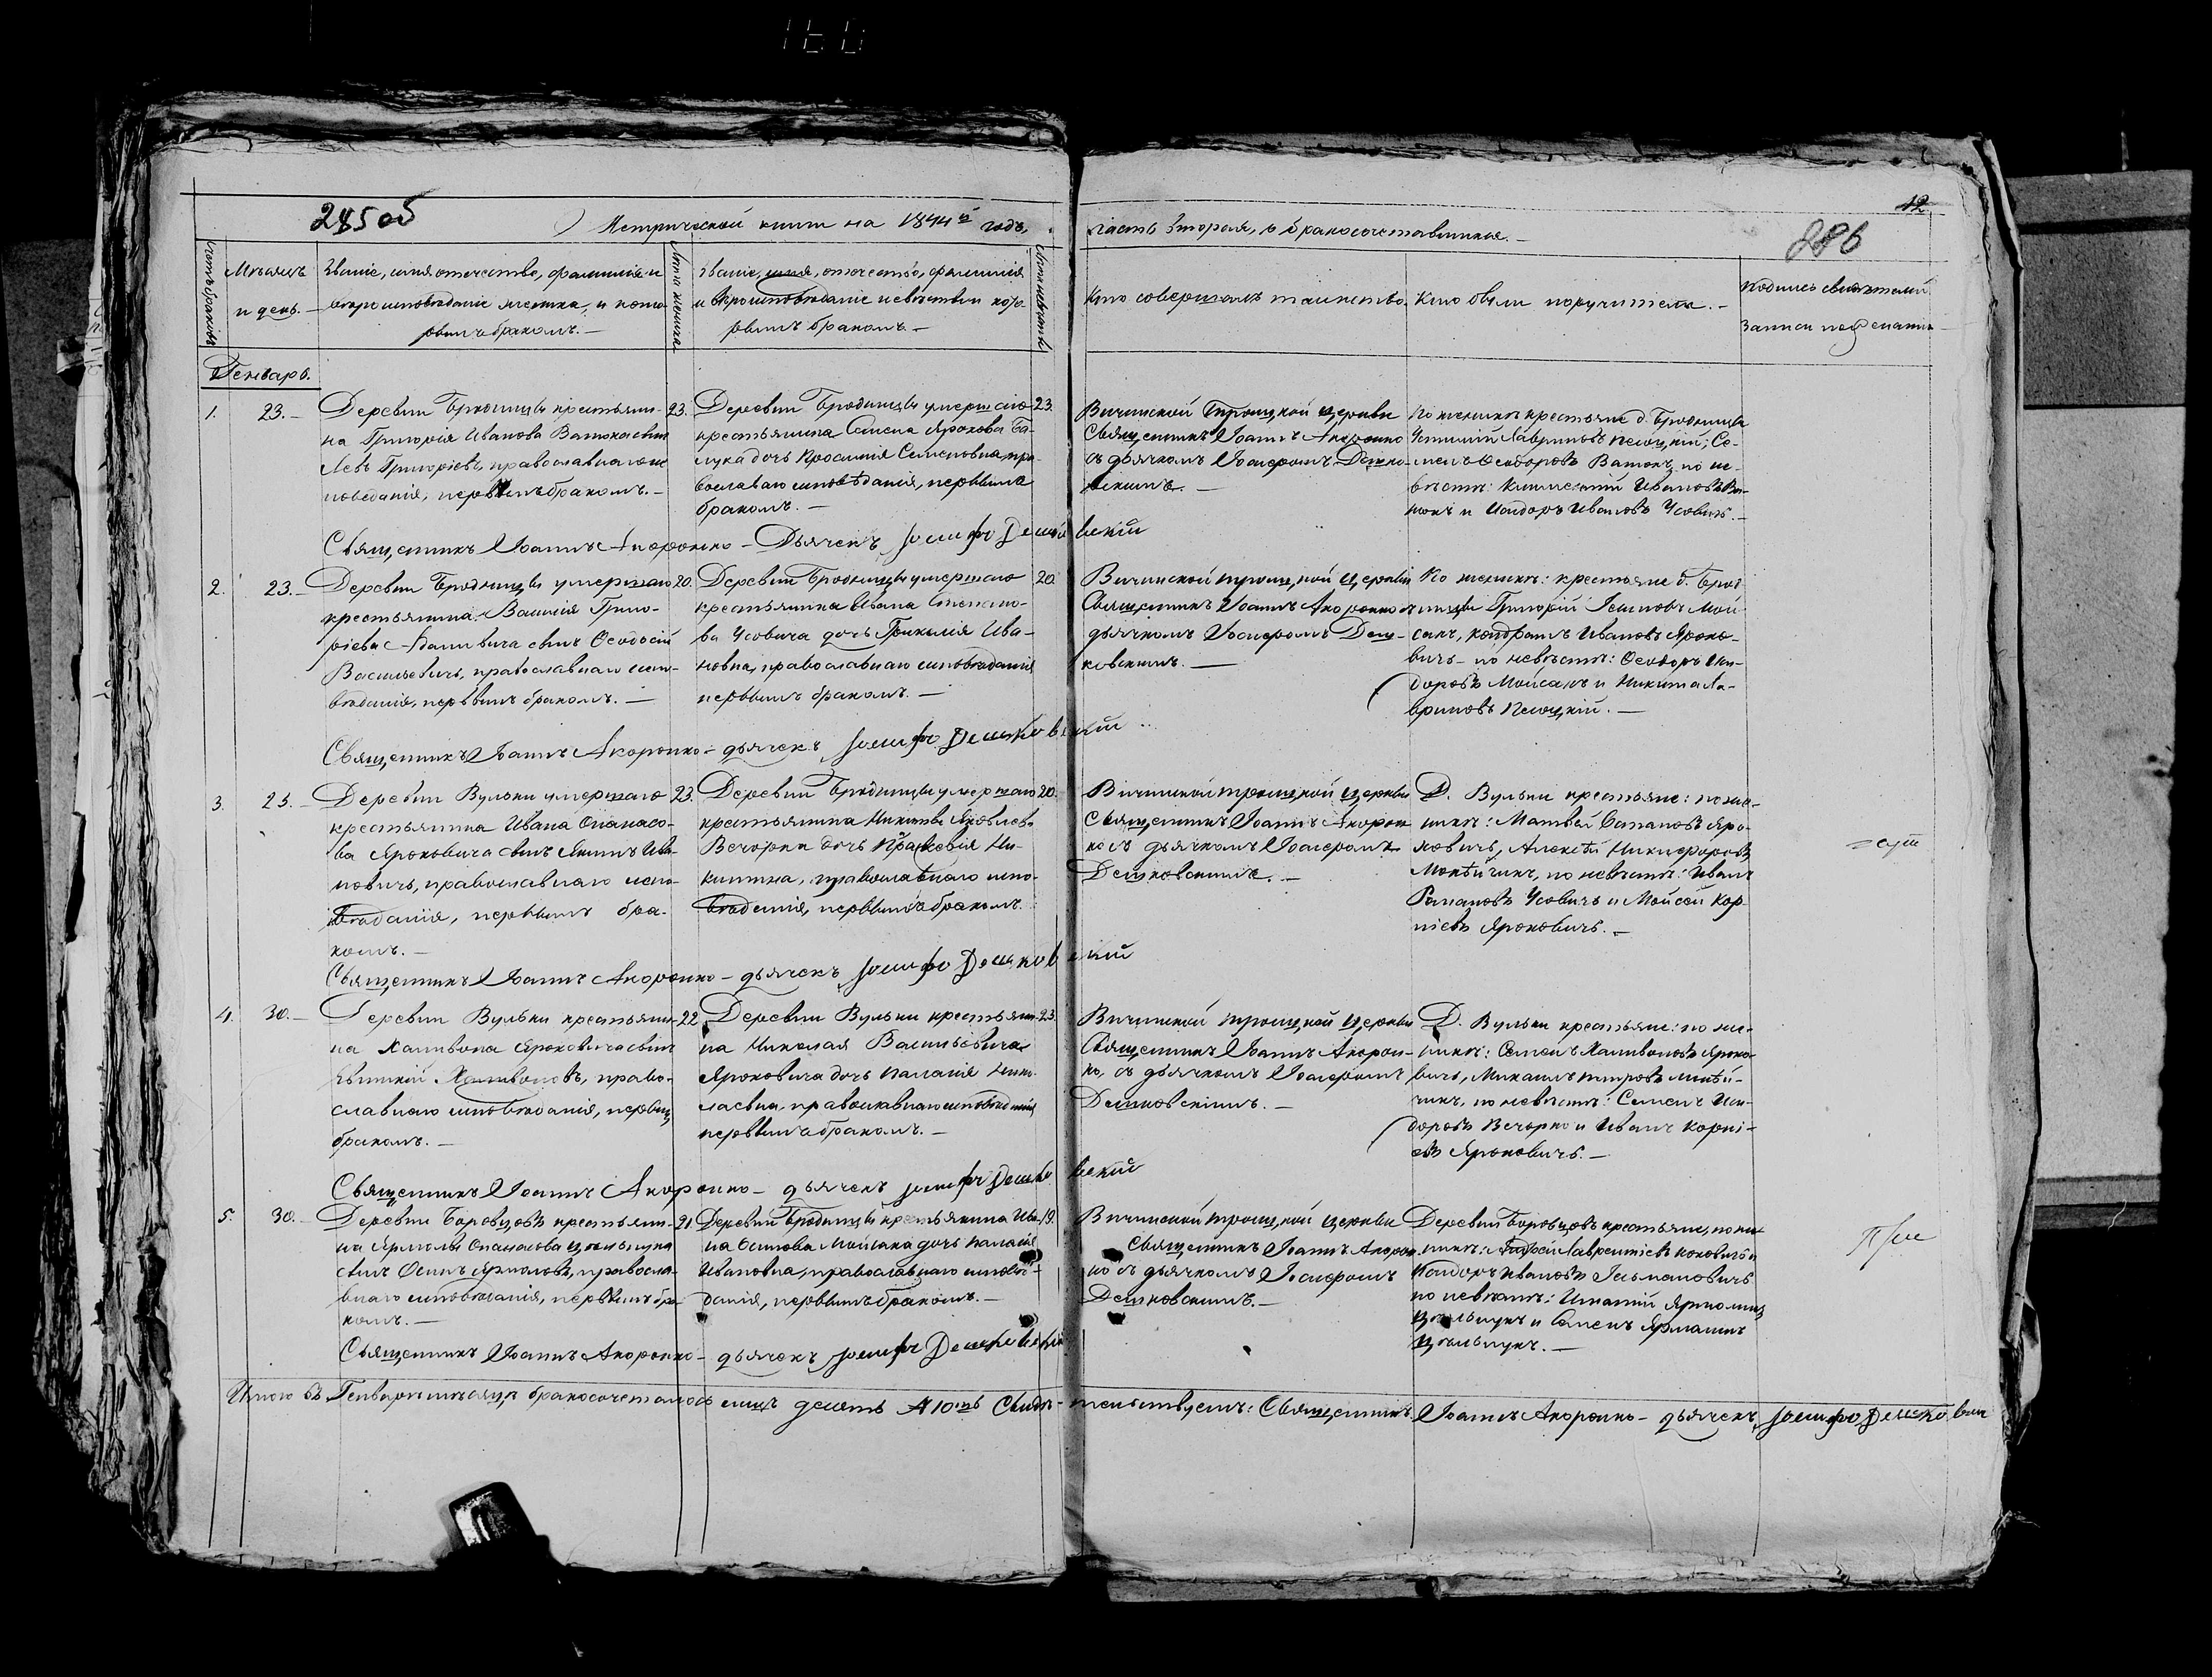 160
285 об
Метрической книги на 1844й годъ,
часть вторая, о бракосочетавшихся. –
12
286
Счетъ браковъ
Мѣсяцъ
и день. –
Званіе, имя, отчество, фамилія и
вѣроисповѣданіе жениха, и кото-
рымъ бракомъ. –
Лѣта жениха
Званіе, имя, отчество, фамилія
и вѣроисповѣданіе невѣсты и кото
рымъ бракомъ. –
Лѣта невѣсты
Кто совершалъ таинство.
Кто были поручители. –
Подпись свидѣтелей
записи по желанію
Генварь.
1.
23. –
Деревни Бродницы крестьяни-
на Григорія Иванова сынъ
Левъ Григорьевъ, православнаго ис
поведанія, первымъ бракомъ. –
23.
Деревни Бродницы умершаго
крестьянина Семена Ярохова
дочь Семеновна, пра-
вославнаго исповѣданія, первымъ
бракомъ. –
23.
Вичинской Троицкой церкви
Священникъ Іоаннъ Акоронко
съ дьячкомъ Іосифомъ Дешко-
вскимъ. –
По женихѣ крестьяне д. Бродницы
Лавриновъ Пелоцкій; Се-
менъ Ѳеодоровъ по не-
вѣстѣ: Ивановъ
и Исидоръ Ивановъ Усовичъ. –
Священникъ Іоаннъ Акоронко – Дьячекъ Іосифъ Дешковскій
2.
23. –
Деревни Бродницы умершаго
крестьянина Василія Григо-
рiева сынъ Ѳеодосій
Васильевичъ, православнаго испо-
вѣданія, первымъ бракомъ. –
20.
Деревни Бродницы умершаго
крестьянина Ивана Степано-
ва Усовича дочь Ива-
новна, православнаго исповѣданія
первымъ бракомъ. –
20.
Вичинской троицкой церкви
Священникъ Іоаннъ Акоронко съ
дьячкомъ Іосифомъ Деш-
ковскимъ. –
По женихѣ: крестьяне д. Брод-
ницы Григорій Мой-
сакъ, Кондратъ Ивановъ Яроко-
вичъ – по невѣстѣ: Ѳеодоръ Иси-
доровъ Мойсакъ и Никита Ла-
вриновъ Пелоцкій. –
Священникъ Іоаннъ Акоронко – дьячекъ Іосифъ Дешковскій
3.
23. –
Деревни Вульки умершаго
крестьянина Ивана Опанасо-
ва Яроковича сынъ Якимъ Ива-
новичъ, православнаго испо-
вѣданія, первымъ бра-
комъ. –
23.
Деревни Бродницы умершаго
крестьянина Никиты Яковлева
Вечорки дочь Праксевія Ни-
китина, православнаго испо-
вѣданія, первымъ бракомъ.
20.
Вичинской троицкой церкви
Священникъ Іоаннъ Акорон
ко съ дьячкомъ Іосифомъ
Дешковскимъ. –
Д. Вульки крестьяне: по же-
нихѣ: Матвей Яро-
ковичъ, Алексѣй Никифоровъ
по невѣстѣ: Иванъ
Романовъ Усовичъ и Мойсей Кор
нiевъ Яроковичъ. –
Священникъ Іоаннъ Акоронко – дьячекъ Іосифъ Дешковскій
4.
30. –
Деревни Вульки крестьяни-
на Халивона Яроковича сынъ
Халивоновъ, право-
славнаго исповѣданія, первым
бракомъ. –
22
Деревни Вульки крестьяни-
на Николая Васильевича
Яроковича дочь Паланія Нико-
лаевна, православнаго исповѣданія
первымъ бракомъ. –
23.
Вичинской троицкой церкви
Священникъ Іоаннъ Акорон-
ко, съ дьячкомъ Іосифомъ
Дешковскимъ. –
Д. Вульки крестьяне: по же-
нихѣ: Семенъ Халивоновъ Яроко-
вичъ, Михаилъ Петровъ
по невѣстѣ: Семенъ Иси-
доровъ Вечорко и Иванъ Корнi-
евъ Яроковичъ. –
Священникъ Іоаннъ Акоронко – дьячекъ Іосифъ Дешковскій
5.
30. –
Деревни Боровцовъ крестьяни-
на Ярмолы Опанасова
сынъ Осипъ Ярмоловъ, правосла-
внаго исповѣданія, первымъ бра
комъ. –
21
Деревни Бродницы крестьянина Ива-
на Осипова Мойсака дочь Паланія
Ивановна, православнаго исповѣ-
данія, первымъ бракомъ. –
19.
Вичинской троицкой церкви
Священникъ Іоаннъ Акорон
ко съ дьячкомъ Іосифомъ
Дешковскимъ. –
Деревни Боровцовъ крестьяне, по же
нихѣ: Лаврентіевъ и
Исидоръ Ивановъ
по невѣстѣ: Игнатій
и Семенъ
Священникъ Іоаннъ Акоронко – дьячекъ Іосифъ Дешковскій
Итого въ Генварѣ мѣсяцѣ бракосочеталось лицъ десять 10ть Свидѣтельствуемъ: Священникъ Іоаннъ Акоронко – дьячекъ Іосифъ Дешковскій